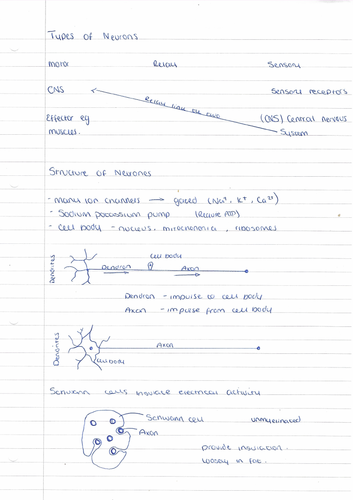 Types of Neurons
Motor Relay Sensory
CNS Sensory receptors
Relay link the two
Effector eg (CNS) Central nervous
muscles. System
Structure of Neurones
- Many ion channels → gated (Na⁺, K⁺, Ca²⁺)
- Sodium potassium pump (Require ATP)
- Cell body - nucleus, mitochondria, ribosomes
Dendrites
Cell body
Dendron Axon
Dendron - impulse to cell body
Axon - impulse from cell body
Dendrites
Axon
Cell body
Schwann cells insulate electrical activity
Schwann cell unmyelinated
Axon
provide insulation.